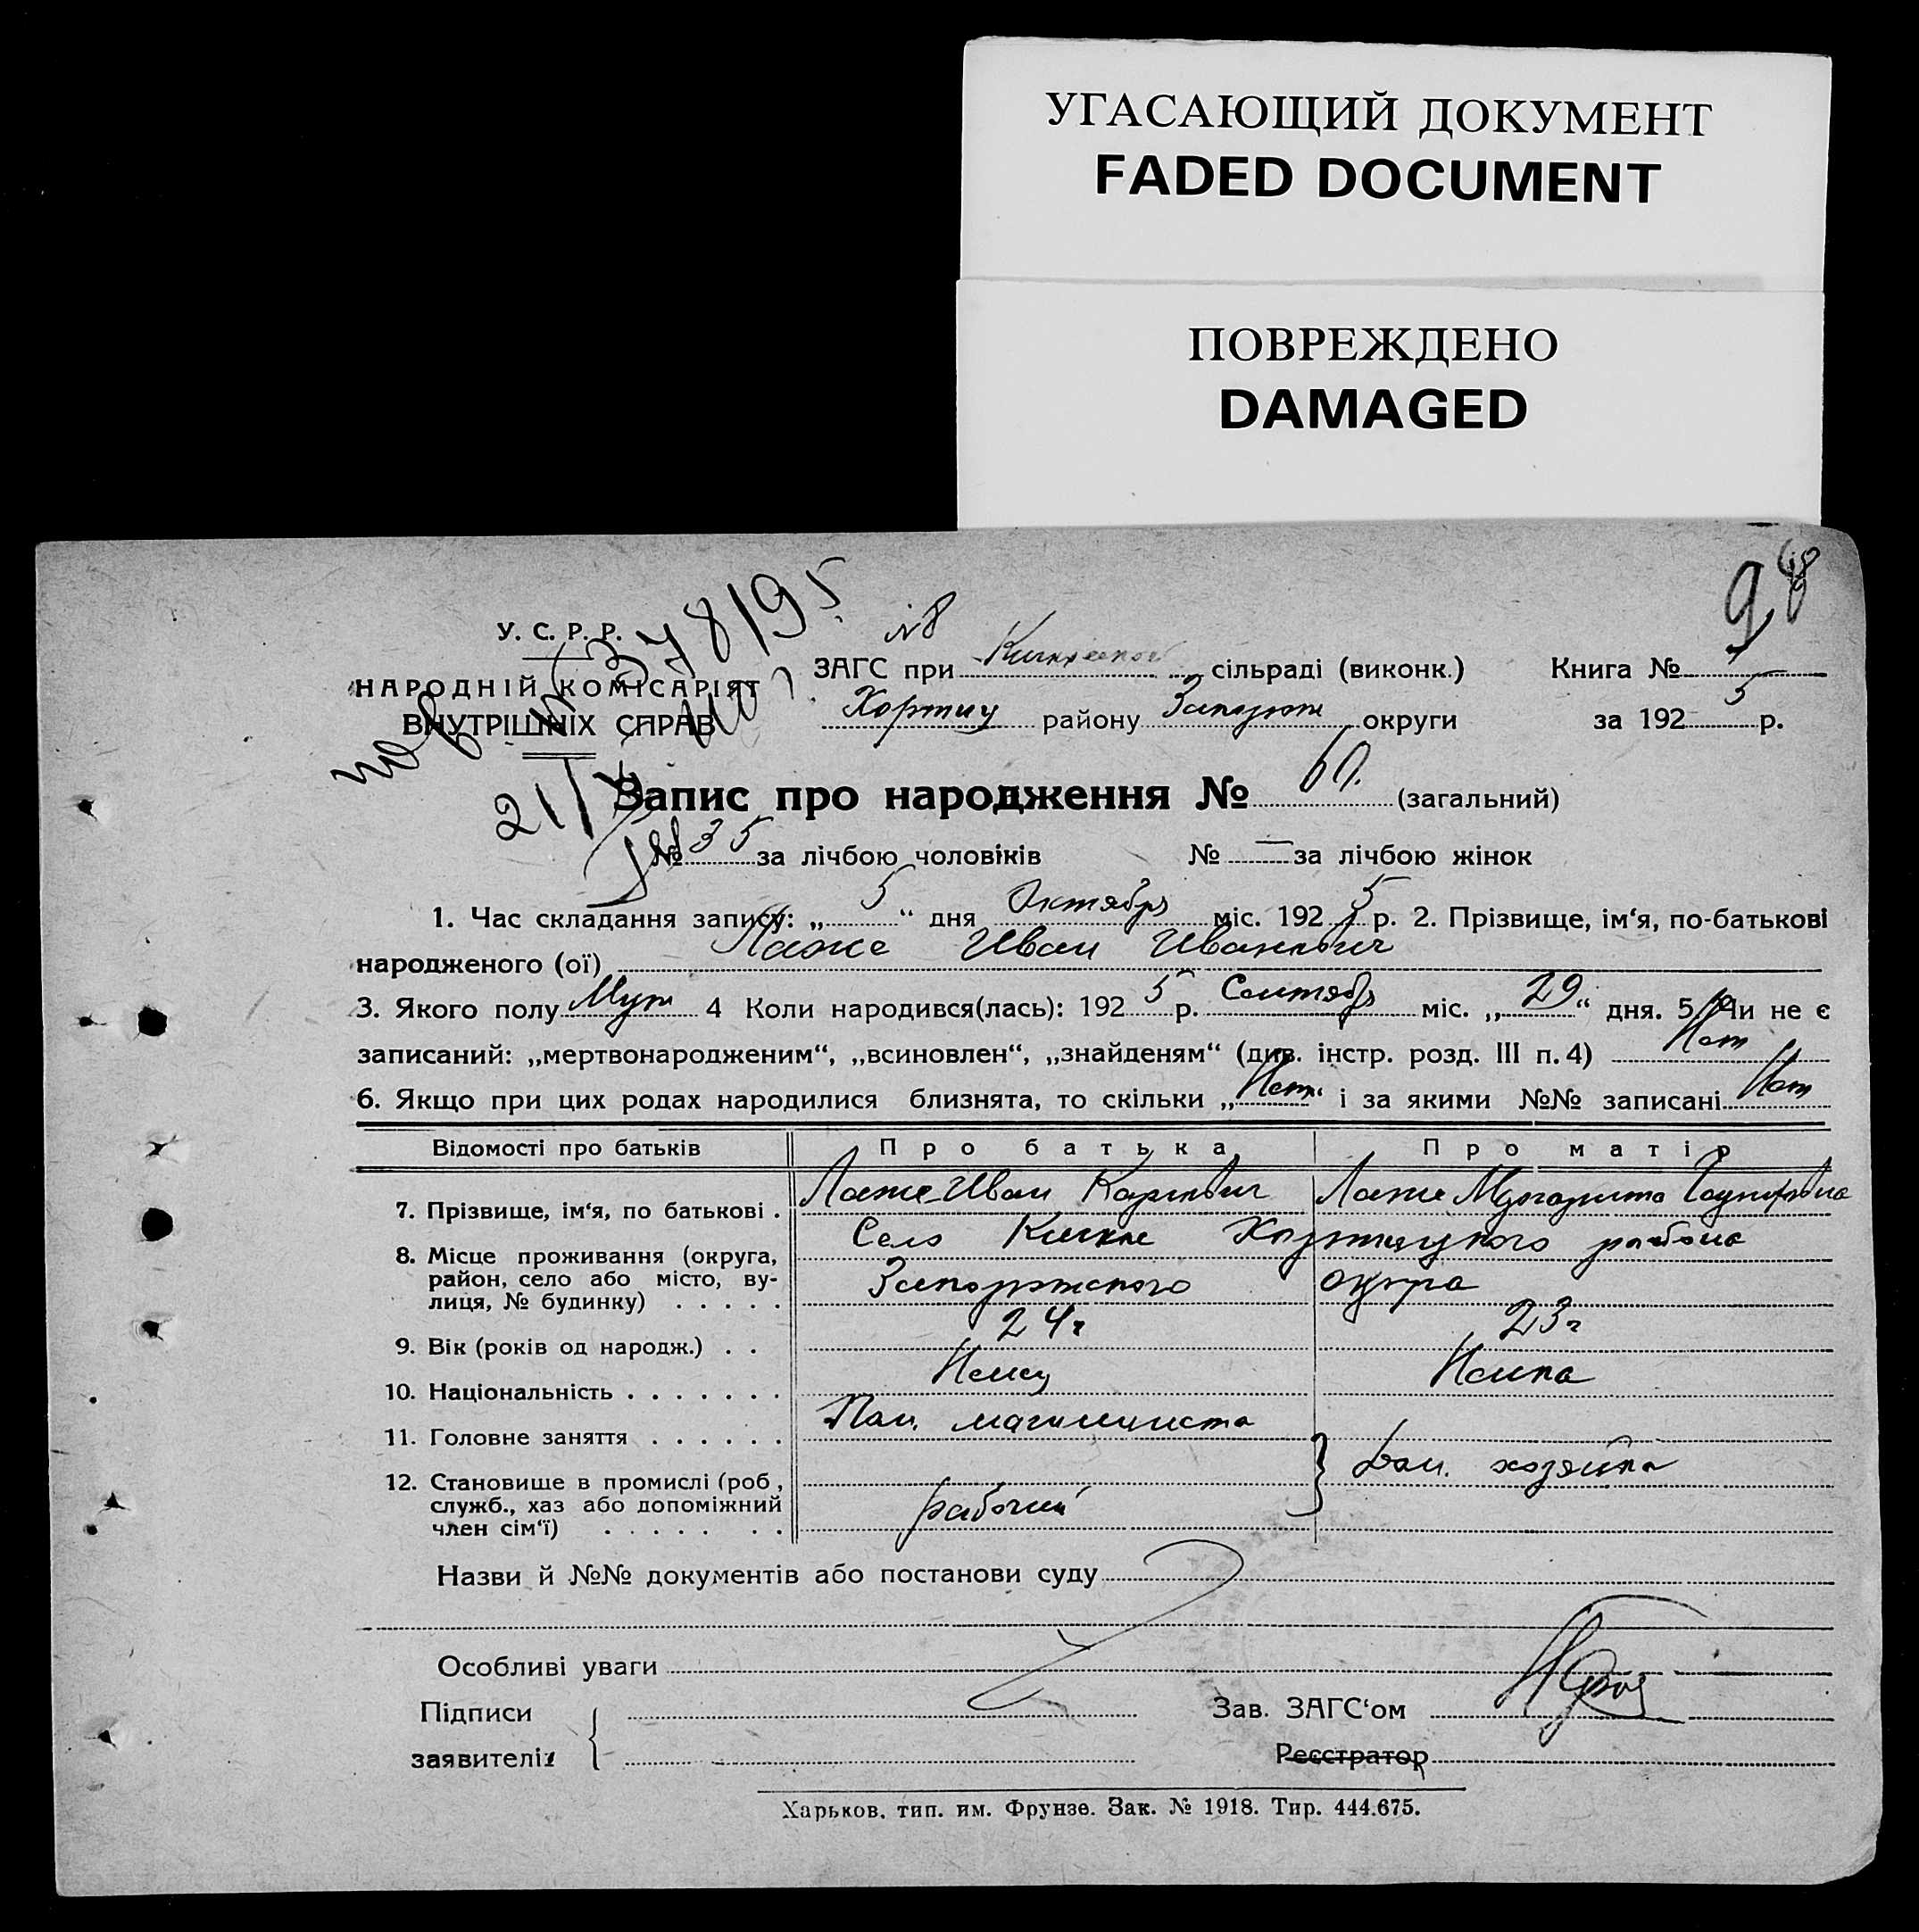 УГАСАЮЩИЙ ДОКУМЕНТ
FADED DOCUMENT
ПОВРЕЖДЕНО
DAMAGED
98
У. С. Р. Р.
НАРОДНІЙ КОМІСАРІЯТ
ВНУТРІШНІХ СПРАВ
№8
ЗАГС при сільраді (виконк.) Книга №
Хортиц району Запорож округи за 1925 р.
Запис про народження № 60. (загальний)
№ 35 за лічбою чоловіків № — за лічбою жінок
1. Час складання запису: „5“ дня Октября міс. 1925 р. 2. Прізвище, ім‘я, по-батькові
народженого (ої) Иван Иванович
3. Якого полу Муж 4 Коли народився(лась): 1925 р. Сентябр міс. „29“ дня. 5. Чи не є
записаний: „мертвонародженим“, „всиновлен“, „знайденям“ (див. інстр. розд. III п. 4) Нет
6. Якщо при цих родах народилися близнята, то скільки „Нет“ і за якими №№ записані Нет
Відомості про батьків Про батька Про матір
7. Прізвище, ім‘я, по батькові . Иван Карлович Маргарита
8. Місце проживання (округа, район, село або місто, ву-
лиця, № будинку) . . . . . Село Кичкас Хортицкого района
Запорожского округа
9. Вік (років од народж.) . . 24 г 23 г
10. Національність . . . . . . . Немец Немка
11. Головне заняття . . . . . . Пом. машиниста
12. Становище в промислі (роб,
служб., хаз або допоміжний
член сім‘ї) . . . . . . . рабочий Дом. хозяйка
Назви й №№ документів або постанови суду
Особливі уваги
Підписи
заявителів
Зав. ЗАГС‘ом
Реєстратор
Харьков. тип. им. Фрунзе. Зак. № 1918. Тир. 444.675.